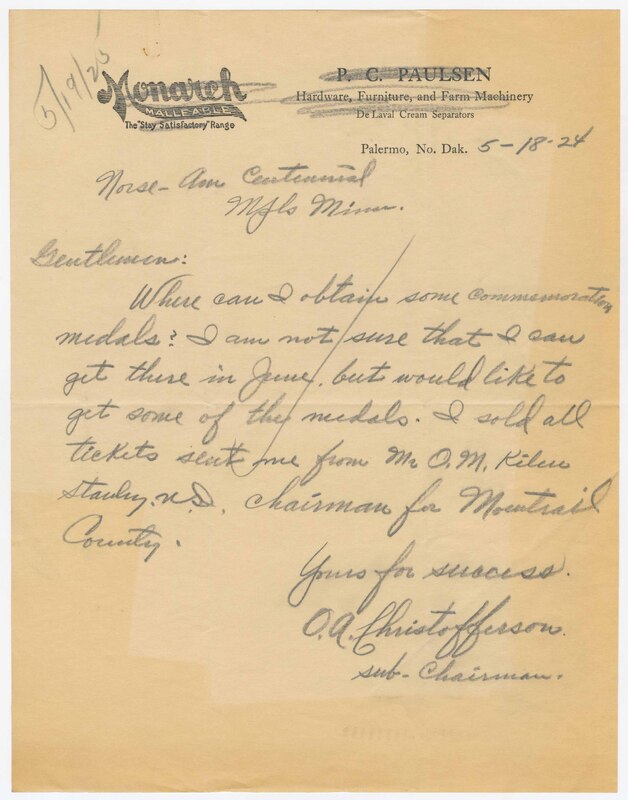 5/19/25
Monarch
MALLEABLE
The "Stay Satisfactory" Range
P. C. PAULSEN
Hardware, Furniture, and Farm Machinery
De Laval Cream Separators
Palermo, No. Dak. 5-18-24
Norse-Am Centennial
Mpls Minn.
Gentlemen:
Where can I obtain some commemoration
medals? I am not sure that I can
get there in June, but would like to
get some of the medals. I sold all
tickets sent me from Mr O. M. Kilen
Stanley, N.D. Chairman for Mountrail
County.
Yours for success.
O.A. Christofferson.
sub-Chairman.